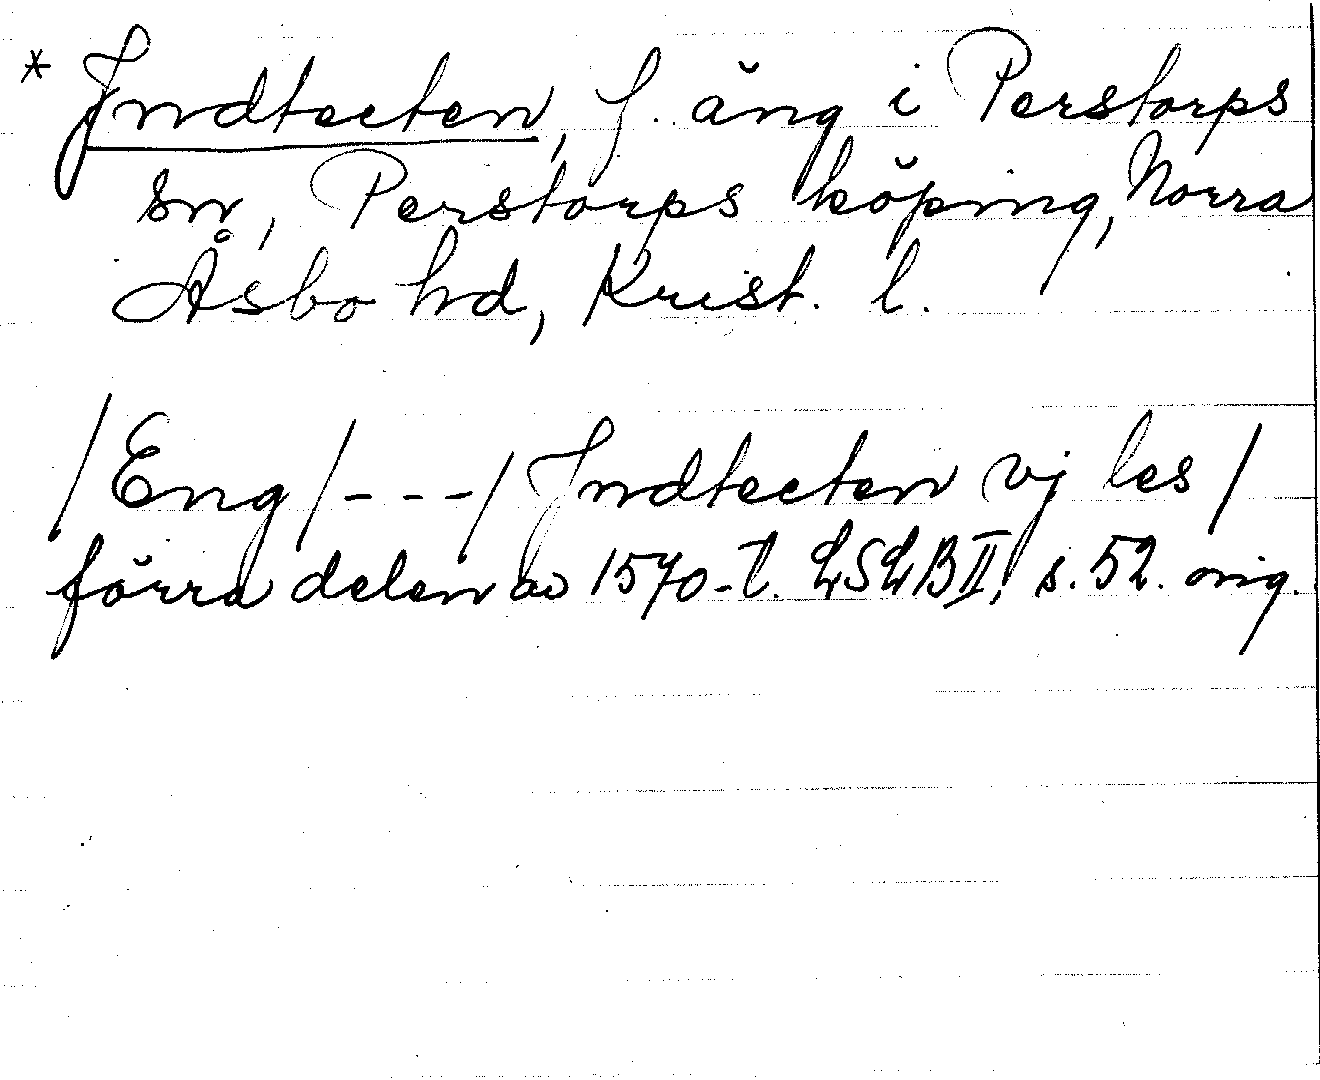 * Jndtecten, f. äng i Perstorps
sn, Perstorps köping, Norra
Åsbo hd, Krist. l.
/Eng/---/ Jndtecten vj les/
förra delen av 1570-t. LSLB II, s. 52. orig.